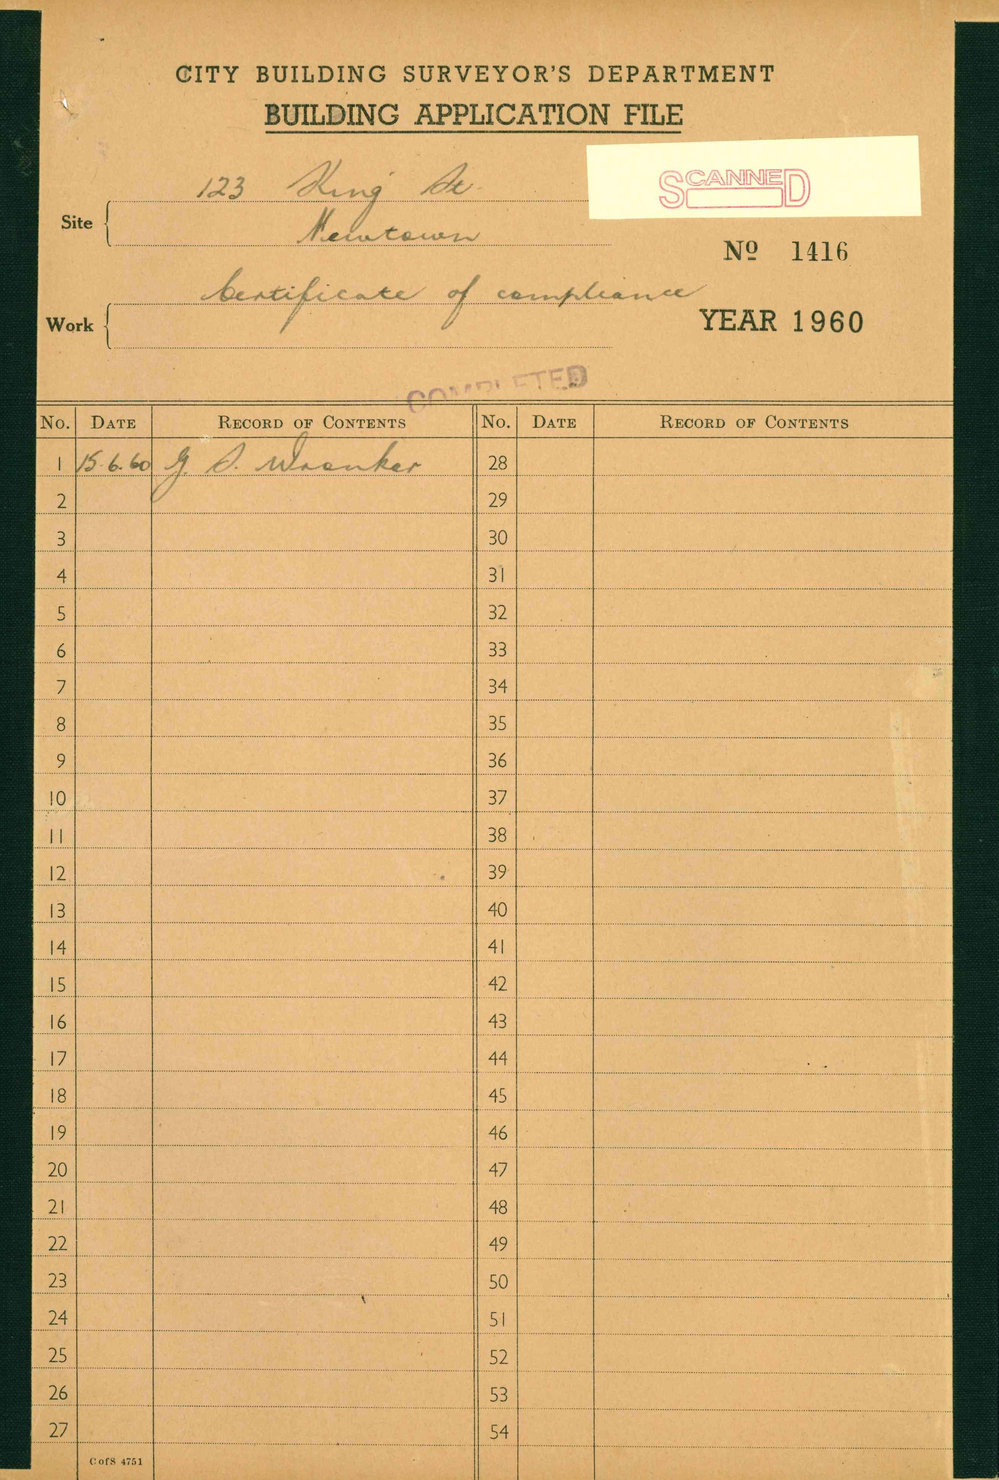 CITY BUILDING SURVEYOR'S DEPARTMENT
BUILDING APPLICATION FILE
SCANNED
Site
123 King St
Newtown
Nº 1416
Work
Certificate of compliance
YEAR 1960
COMPLETED
No. DATE RECORD OF CONTENTS No. DATE RECORD OF CONTENTS
1 15.6.60 G. S. 28
2 29
3 30
4 31
5 32
6 33
7 34
8 35
9 36
10 37
11 38
12 39
13 40
14 41
15 42
16 43
17 44
18 45
19 46
20 47
21 48
22 49
23 50
24 51
25 52
26 53
27 54
C of S 4751